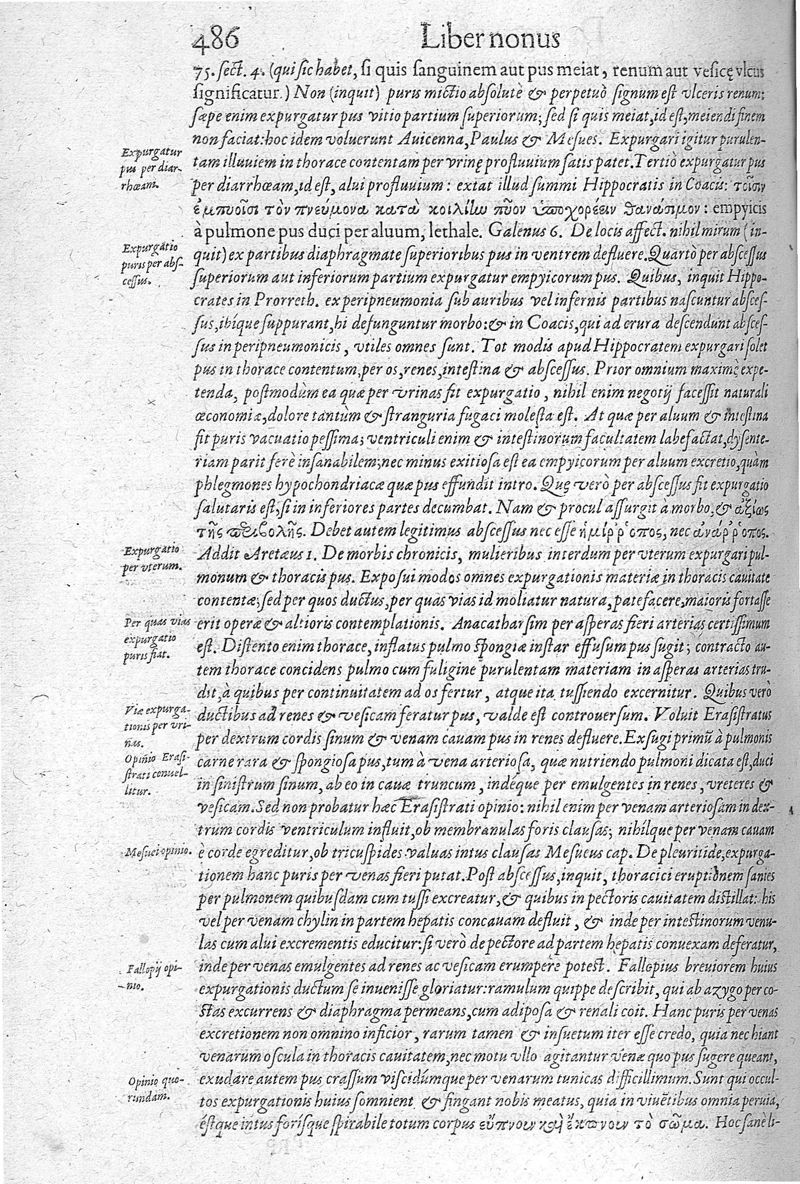 486 Liber nonus
75. sect. 4. (qui sic habet, si quis sanguinem aut pus meiat, renum aut vesicę vlcus
significatur.) Non (inquit) puris mictio absolutè & perpetuò signum est vlceris renum;
sæpe enim expurgatur pus vitio partium superiorum; sed si quis meiat, id est, meiendi finem
non faciat: hoc idem voluerunt Auicenna, Paulus & Mesues. Expurgari igitur purulen-
Expurgatur
pus per diar-
rhœam.
tam illuuiem in thorace contentam per vrinę profluuium satis patet. Tertiò expurgatur pus
per diarrhœam, id est, alui profluuium: extat illud summi Hippocratis in Coacis: τοῖσιν
ἐμπυοῖσι τὸν πνεύμονα κατὰ κοιλίω πῦον ὑποχορέειν θανάσιμον: empyicis
à pulmone pus duci per aluum, lethale. Galenus 6. De locis affect. nihil mirum (in-
Expurgatio
puris per abs-
cessus.
quit) ex partibus diaphragmate superioribus pus in ventrem defluere. Quartò per abscessus
superiorum aut inferiorum partium expurgatur empyicorum pus. Quibus, inquit Hippo-
crates in Prorreth. ex peripneumonia sub auribus vel infernis partibus nascuntur absces-
sus, ibique suppurant, hi defunguntur morbo: & in Coacis, qui ad crura descendunt absces-
sus in peripneumonicis, vtiles omnes sunt. Tot modis apud Hippocratem expurgari solet
pus in thorace contentum, per os, renes, intestina & abscessus. Prior omnium maximè expe-
tenda, postmodùm ea quæ per vrinas fit expurgatio, nihil enim negotij facessit naturali
œconomiæ, dolore tantùm & stranguria fugaci molesta est. At quæ per aluum & intestina
fit puris vacuatio pessima; ventriculi enim & intestinorum facultatem labefactat, dysente-
riam parit ferè insanabilem; nec minus exitiosa est ea empyicorum per aluum excretio, quàm
phlegmones hypochondriacæ quæ pus effundit intro. Quę verò per abscessus fit expurgatio
salutaris est, si in inferiores partes decumbat. Nam & procul assurgit à morbo, & ἀξίως
τῆς περιβολῆς. Debet autem legitimus abscessus nec esse ἡμίῤῥοπος, nec ἀνάῤῥοπος.
Expurgatio
per vterum.
Addit Aretæus 1. De morbis chronicis, mulieribus interdum per vterum expurgari pul-
monum & thoracis pus. Exposui modos omnes expurgationis materiæ in thoracis cauitate
contentæ; sed per quos ductus, per quas vias id moliatur natura, patefacere, maioris fortasse
Per quas vias
expurgatio
puris fiat.
erit operæ & altioris contemplationis. Anacatharsim per asperas fieri arterias certissimum
est. Distento enim thorace, inflatus pulmo spongiæ instar effusum pus sugit; contracto au-
tem thorace concidens pulmo cum fuligine purulentam materiam in asperas arterias tru-
dit, à quibus per continuitatem ad os fertur, atque ita tussiendo excernitur. Quibus verò
Viæ expurga-
tionis per vri-
nas.
ductibus ad renes & vesicam feratur pus, valde est controuersum. Voluit Erasistratus
per dextrum cordis sinum & venam cauam pus in renes defluere. Exsugi primũ à pulmonis
Opinio Erasi-
strati conuel-
litur.
carne rara & spongiosa pus, tum à vena arteriosa, quæ nutriendo pulmoni dicata est, duci
in sinistrum sinum, ab eo in cauæ truncum, indéque per emulgentes in renes, vreteres &
vesicam. Sed non probatur hæc Erasistrati opinio: nihil enim per venam arteriosam in dex-
trum cordis ventriculum influit, ob membranulas foris clausas; nihilque per venam cauam
Mesuei opinio.
è corde egreditur, ob tricuspides valuas intus clausas Mesueus cap. De pleuritide, expurga-
tionem hanc puris per venas fieri putat. Post abscessus, inquit, thoracici eruptionem sanies
per pulmonem quibusdam cum tussi excreatur, & quibus in pectoris cauitatem distillat: his
vel per venam chylin in partem hepatis concauam defluit, & inde per intestinorum venu-
las cum alui excrementis educitur: si verò de pectore ad partem hepatis conuexam deferatur,
Fallopij opi-
nio.
inde per venas emulgentes ad renes ac vesicam erumpere potest. Fallopius breuiorem huius
expurgationis ductum se inuenisse gloriatur: ramulum quippe describit, qui ab azygo per co-
stas excurrens & diaphragma permeans, cum adiposa & renali coit. Hanc puris per venas
excretionem non omnino inficior, rarum tamen & insuetum iter esse credo, quia nec hiant
venarum oscula in thoracis cauitatem, nec motu vllo agitantur venæ quo pus sugere queant,
Opinio quo-
rundam.
exudare autem pus crassum viscidúmque per venarum tunicas difficillimum. Sunt qui occul-
tos expurgationis huius somnient & fingant nobis meatus, quia in viuẽtibus omnia peruia,
éstque intus forísque spirabile totum corpus εὔπνοιω καὶ ἔκπνοιω τὸ σῶμα. Hoc sanè li-